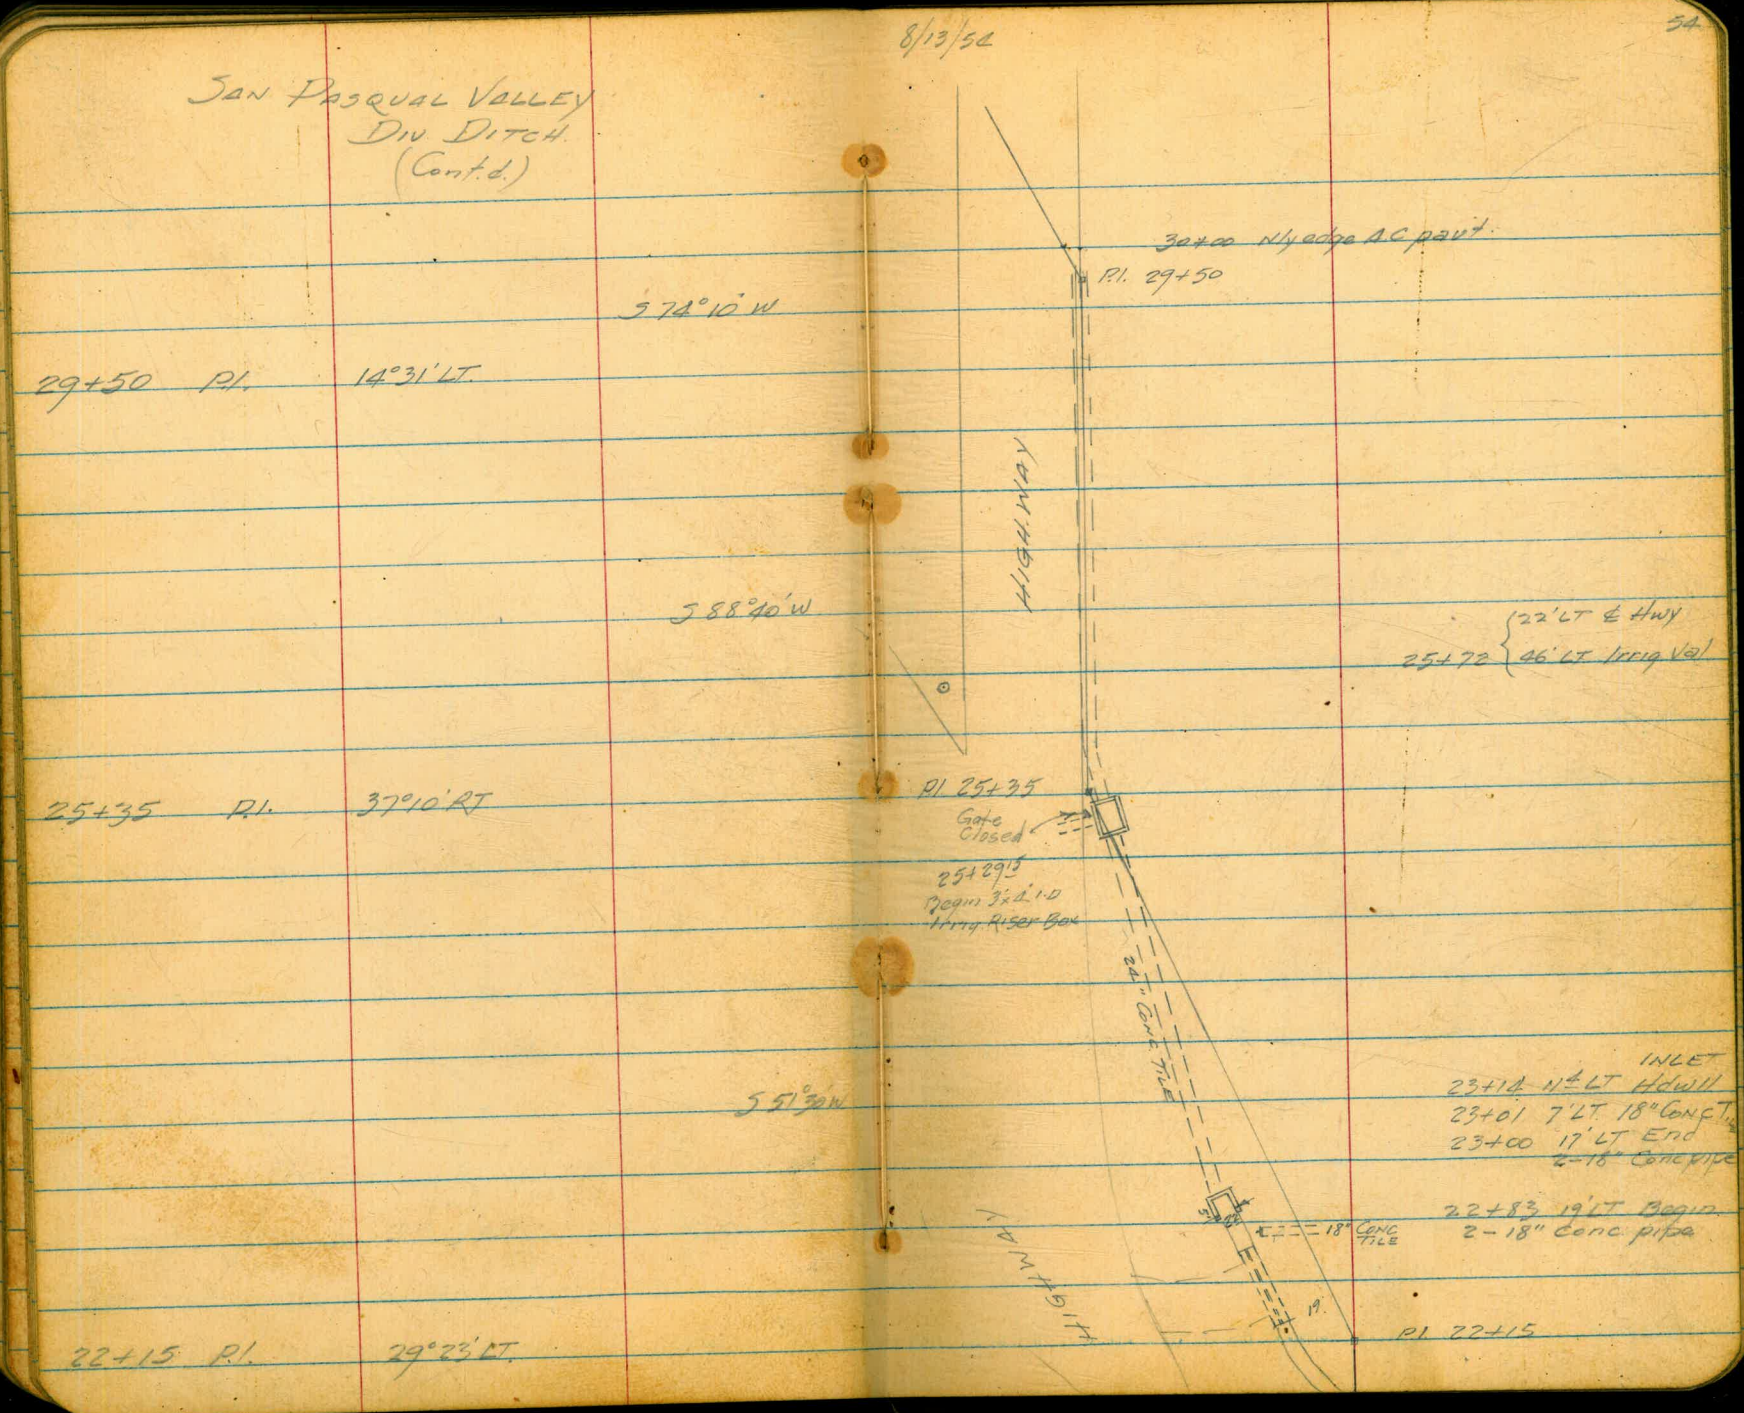 SAN PASQUAL VALLEY
DIV DITCH.
(Cont.d.)
S 74° 10' W
29+50 P.I. 14°31' LT.
S 88°40' W
25+35 P.I. 37°10' RT
S 51°30' W
22+15 P.I. 29°23' LT.
8/13/54
54
30+00 N'ly edge AC pavt.
P.I. 29+50
HIGHWAY
22' LT ₵ Hwy
25+72 46' LT Irrig Val
P.I. 25+35
Gate
Closed
25+29 15
Begin 3'x4' I.D
Irrig Riser Box
24" CONC TILE
INLET
23+14 11 4 LT Hdwll
23+01 7' LT 18" CONC T
23+00 17' LT End
2-18" Conc pipe
22+83 19' LT Begin
2-18" conc pipe
18" CONC
TILE
HIGHWAY
19'
P.I. 22+15